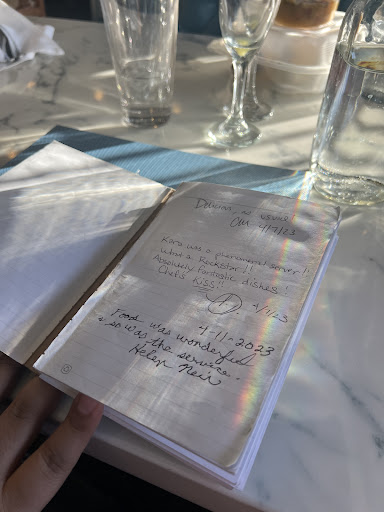 Delicious, as usual
OM 4/7/23
Kara was a phenomenal server!!
What a Rockstar!!
Absolutely fantastic dishes!
Chef's KISS!!
4/9/23
4-11-2023
Food was wonderful
& so was the service.
Helen Neir